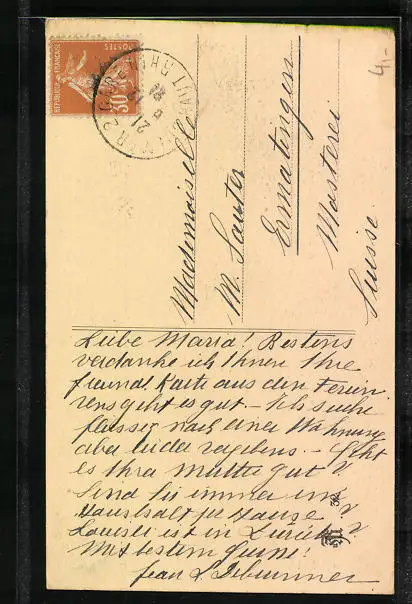 4,-
REPUBLIQUE FRANÇAISE
POSTES
30c
HAUT-RHIN
21
Mademoiselle
M. Sauter
Ermatingen
Masterei
Suisse
Liebe Maria! Bestens
verdanke ich Ihnen Ihre
freundl. Karte aus den Ferien.
Uns geht es gut. - Ich suche
fleissig nach einer Wohnung
aber leider vergebens. - Geht
es Ihrer Mutter gut?
Sind Sie immer im
Haushalt zu Hause?
Louisli ist in Zürich?
Mit bestem Gruss!
Jean L Debrunner